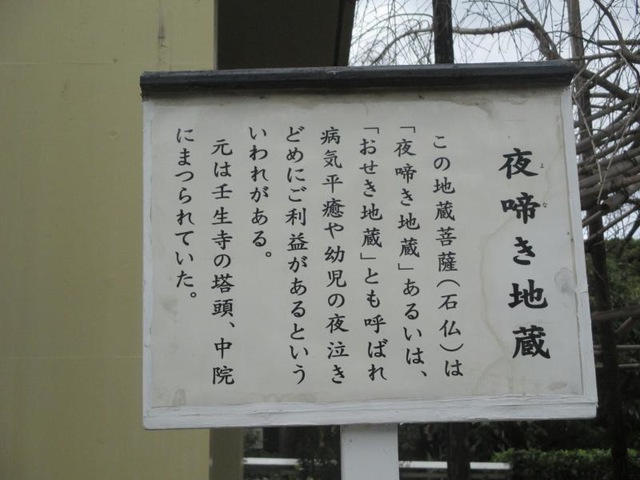 夜啼き地蔵
この地蔵菩薩(石仏)は
「夜啼き地蔵」あるいは、
「おせき地蔵」とも呼ばれ
病気平癒や幼児の夜泣き
どめにご利益があるという
いわれがある。
元は壬生寺の塔頭、中院
にまつられていた。